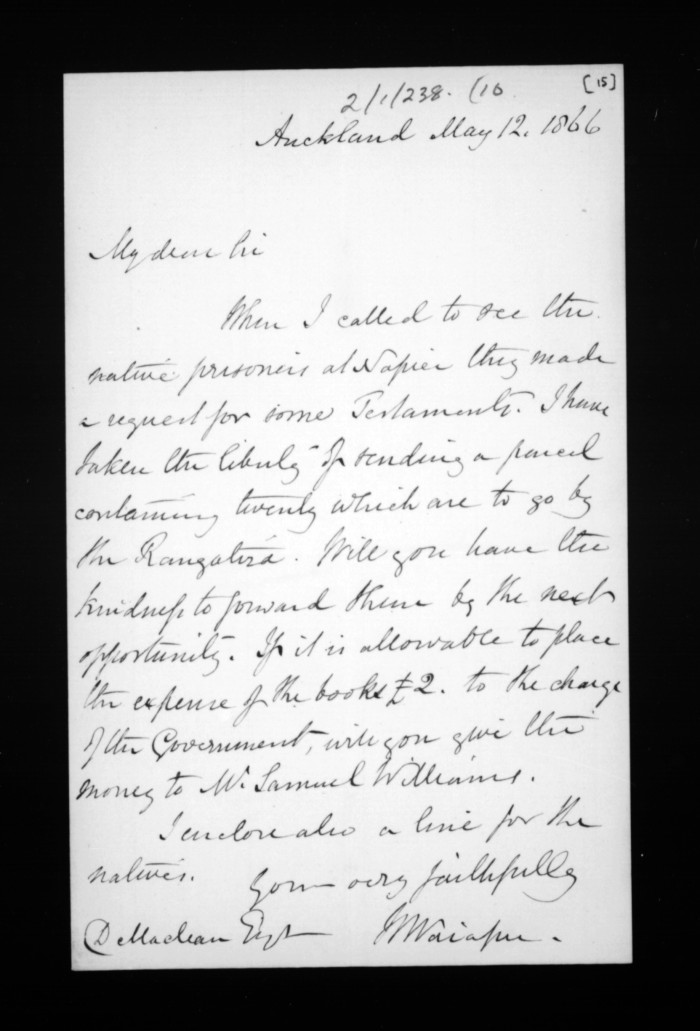 [15]
2/1/238. (16
Auckland May 12. 1866
My dear Sir
When I called to see the
native prisoners at Napier they made
a request for some Testaments. I have
taken the liberty of sending a parcel
containing twenty which are to go by
the Rangatira. Will you have the
kindness to forward them by the next
opportunity. If it is allowable to place
the expense of the books £2. to the charge
of the Government, will you give the
money to Mr. Samuel Williams.
I enclose also a line for the
natives.
Your very faithfully
D Maclean Esqr W Waiapu.